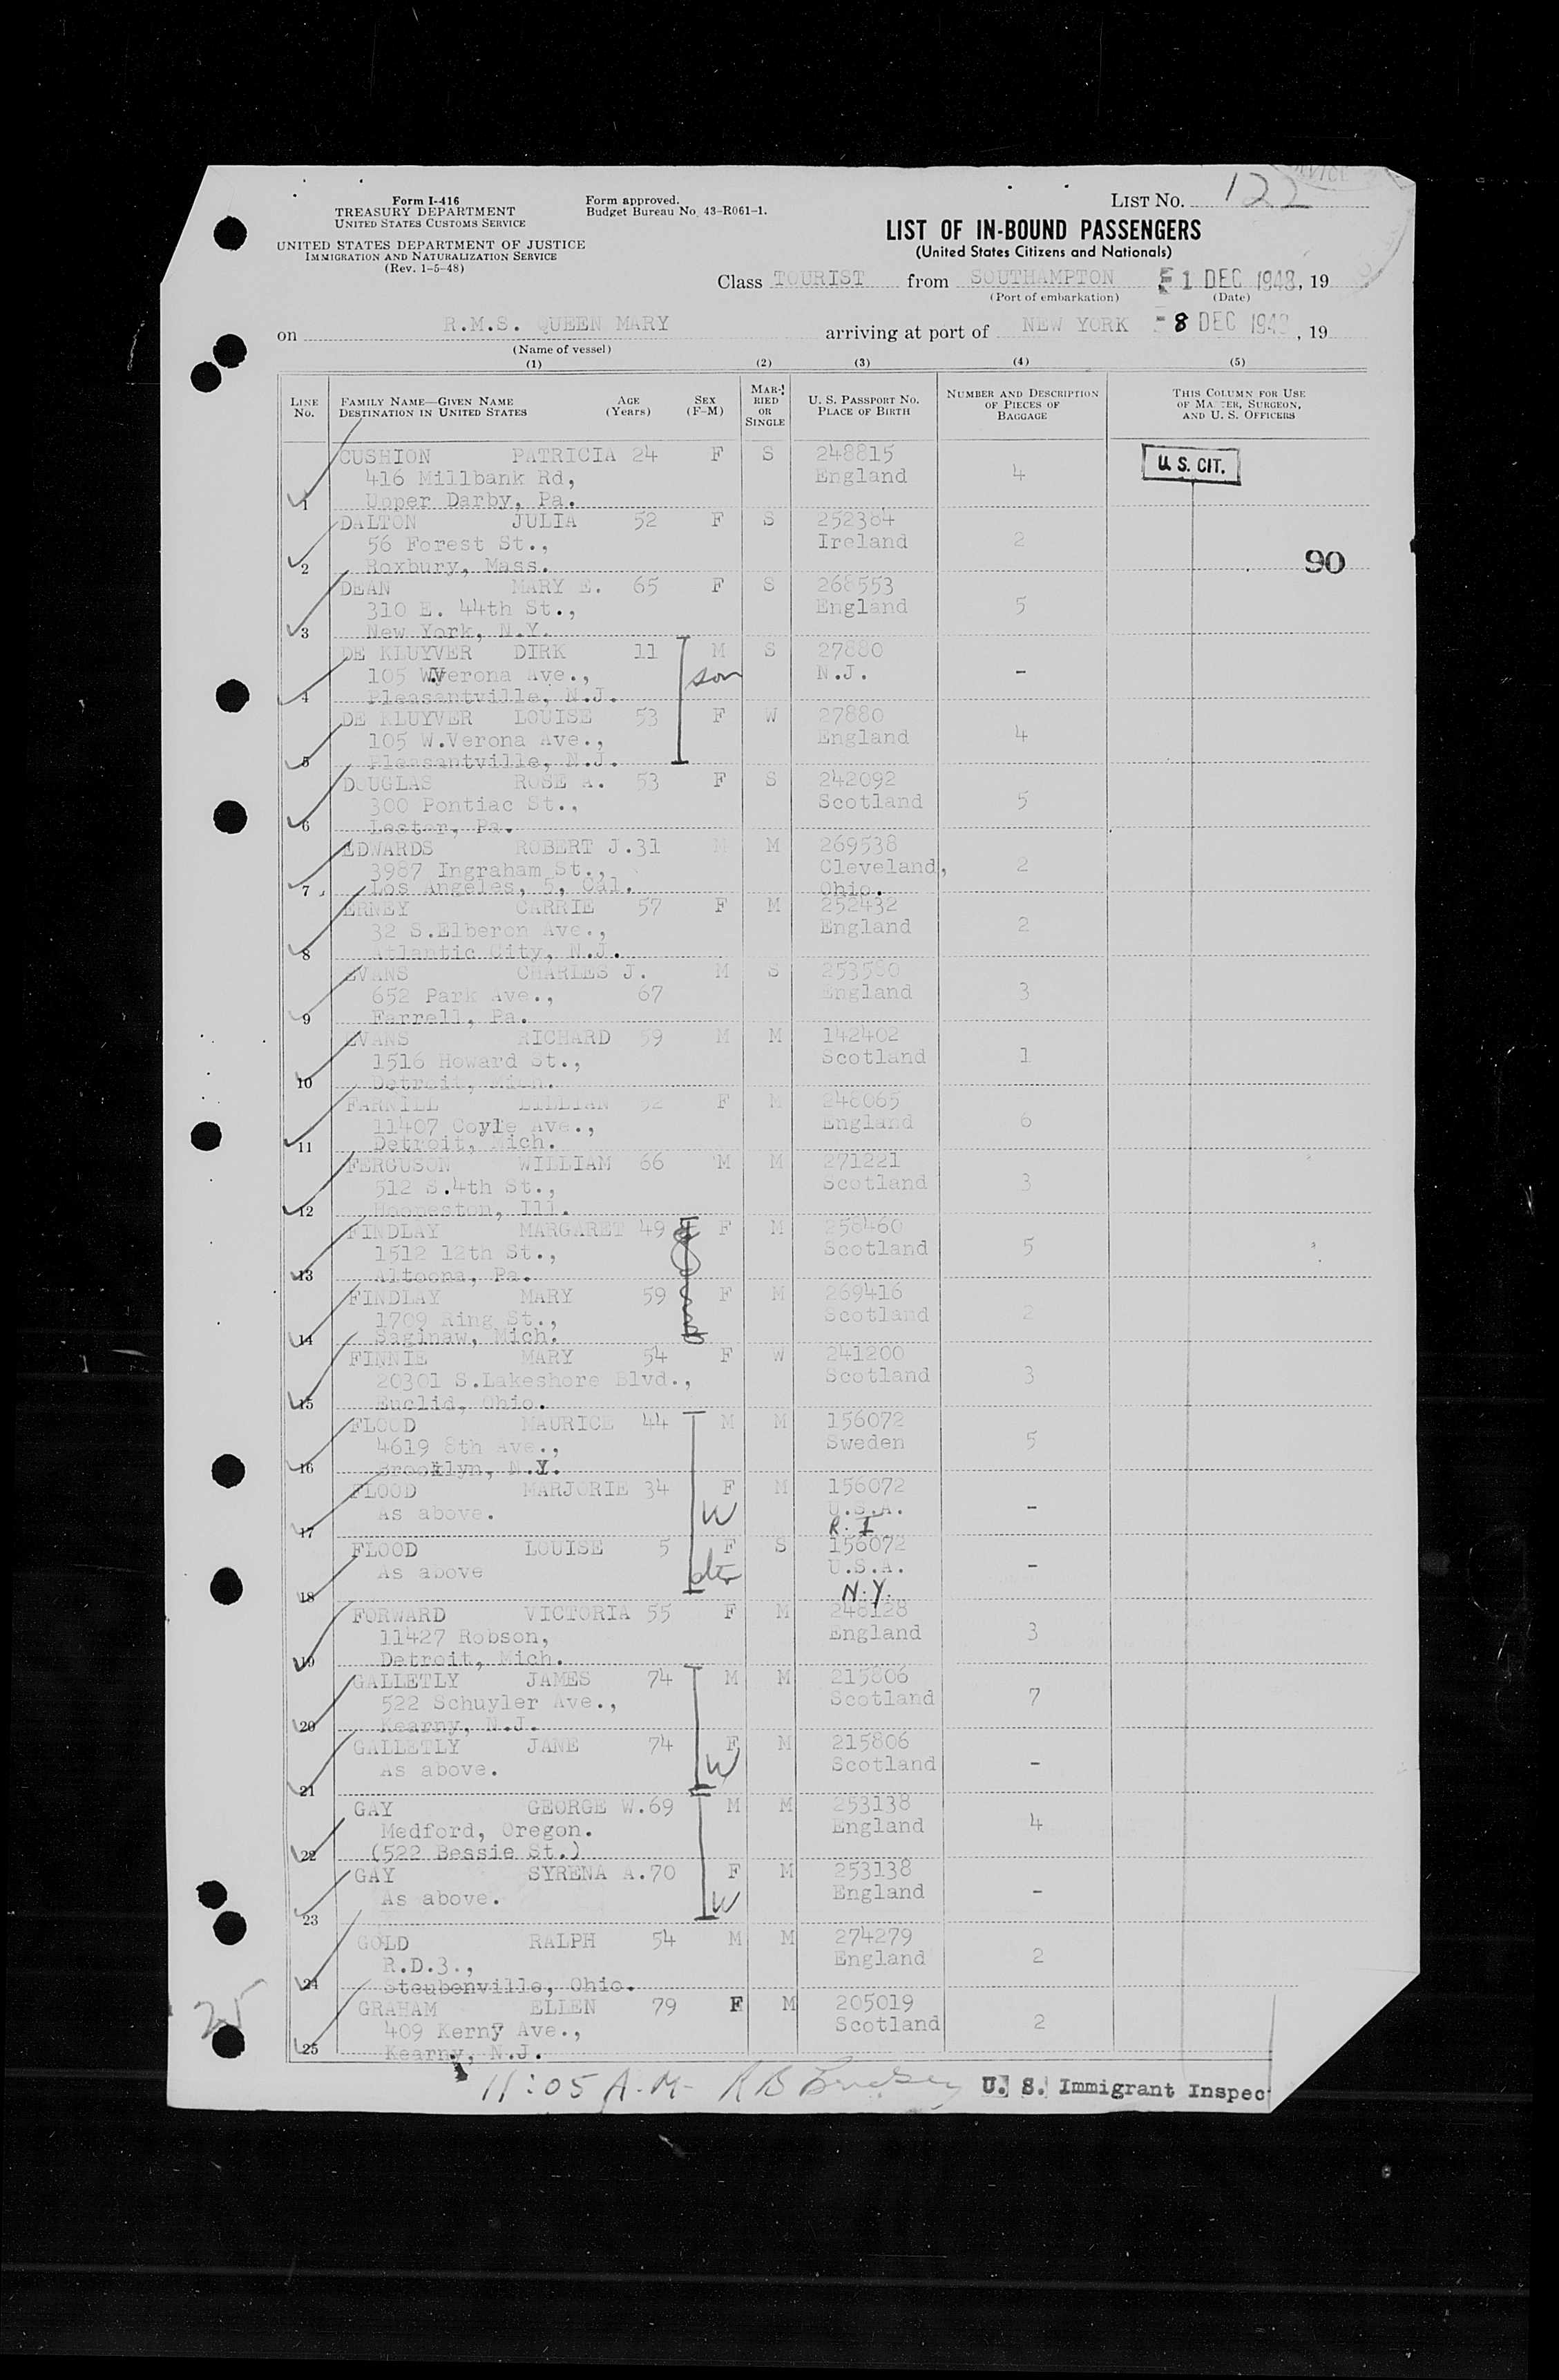 Form I-416
TREASURY DEPARTMENT
UNITED STATES CUSTOMS SERVICE
Form approved.
Budget Bureau No. 43-R061-1.
LIST NO. 122
UNITED STATES DEPARTMENT OF JUSTICE
IMMIGRATION AND NATURALIZATION SERVICE
(Rev. 1-5-48)
LIST OF IN-BOUND PASSENGERS
(United States Citizens and Nationals)
Class TOURIST from SOUTHAMPTON 1 DEC 1948, 19
(Port of embarkation) (Date)
on R.M.S. QUEEN MARY arriving at port of NEW YORK 8 DEC 1948, 19
(Name of vessel)
(1) (2) (3) (4) (5)
LINE No. FAMILY NAME—GIVEN NAME DESTINATION IN UNITED STATES AGE (Years) SEX (F-M) MARRIED OR SINGLE U. S. PASSPORT NO. PLACE OF BIRTH NUMBER AND DESCRIPTION OF PIECES OF BAGGAGE THIS COLUMN FOR USE OF MASTER, SURGEON, AND U. S. OFFICERS
CUSHION PATRICIA 24 F S 248815
416 Millbank Rd, England 4 U.S. CIT.
1 Upper Darby, Pa.
DALTON JULIA 52 F S 252384
56 Forest St., Ireland 2
2 Roxbury, Mass. 90
DEAN MARY E. 65 F S 268553
310 E. 44th St., England 5
3 New York, N.Y.
DE KLUYVER DIRK 11 M S 27880
105 W.Verona Ave., son N.J. -
4 Pleasantville, N.J.
DE KLUYVER LOUISE 53 F W 27880
105 W.Verona Ave., England 4
5 Pleasantville, N.J.
DOUGLAS ROSE A. 53 F S 242092
300 Pontiac St., Scotland 5
6 Lester, Pa.
EDWARDS ROBERT J. 31 M M 269538
3987 Ingraham St., Cleveland, 2
7 Los Angeles, 5, Cal. Ohio.
ERNEY CARRIE 57 F M 252432
32 S.Elberon Ave., England 2
8 Atlantic City, N.J.
EVANS CHARLES J. M S 253580
652 Park Ave., 67 England 3
9 Farrell, Pa.
EVANS RICHARD 59 M M 142402
1516 Howard St., Scotland 1
10 Detroit, Mich.
FARNILL LILLIAN 52 F M 248065
11407 Coyle Ave., England 6
11 Detroit, Mich.
FERGUSON WILLIAM 66 M M 271221
512 S.4th St., Scotland 3
12 Hoopeston, Ill.
FINDLAY MARGARET 49 F M 258460
1512 12th St., Scotland 5
13 Altoona, Pa.
FINDLAY MARY 59 F M 269416
1709 Ring St., Scotland 2
14 Saginaw, Mich.
FINNIE MARY 54 F W 241200
20301 S.Lakeshore Blvd., Scotland 3
15 Euclid, Ohio.
FLOOD MAURICE 44 M M 156072
4619 8th Ave., Sweden 5
16 Brooklyn, N.Y.
FLOOD MARJORIE 34 F M 156072
As above. W U.S.A. -
17 R.I
FLOOD LOUISE 5 F S 156072
As above dtr U.S.A. -
18 N.Y.
FORWARD VICTORIA 55 F M 248128
11427 Robson, England 3
19 Detroit, Mich.
GALLETLY JAMES 74 M M 215806
522 Schuyler Ave., Scotland 7
20 Kearny, N.J.
GALLETLY JANE 74 F M 215806
As above. W Scotland -
21
GAY GEORGE W. 69 M M 253138
Medford, Oregon. England 4
22 (522 Bessie St.)
GAY SYRENA A. 70 F M 253138
As above. W England -
23
GOLD RALPH 54 M M 274279
R.D.3., England 2
24 Steubenville, Ohio.
GRAHAM ELLEN 79 F M 205019
409 Kerny Ave., Scotland 2
25 Kearny, N.J.
25
11:05 A.M. R B U. S. Immigrant Inspec